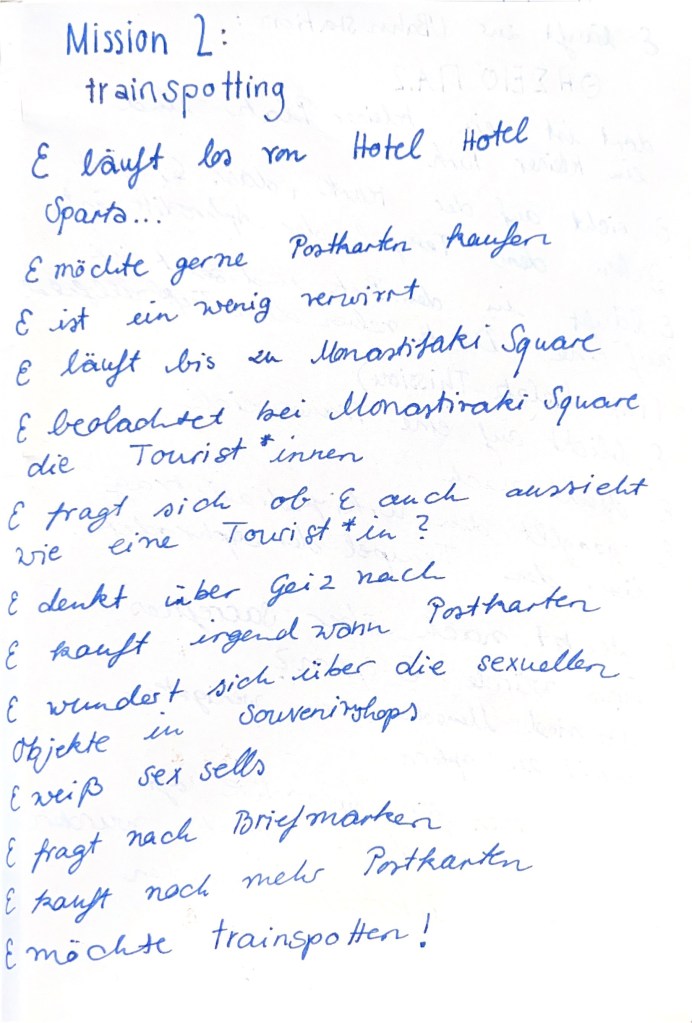 Mission 2:
trainspotting
E läuft los von Hotel Hotel
Sparta...
E möchte gerne Postkarten kaufen
E ist ein wenig verwirrt
E läuft bis zu Monastiraki Square
E beobachtet bei Monastiraki Square
die Tourist*innen
E fragt sich ob E auch aussieht
wie eine Tourist*in?
E denkt über Geiz nach
E kauft irgendwann Postkarten
E wundert sich über die sexuellen
Objekte in Souvenirshops
E weiß sex sells
E fragt nach Briefmarken
E kauft noch mehr Postkarten
E möchte trainspotten!